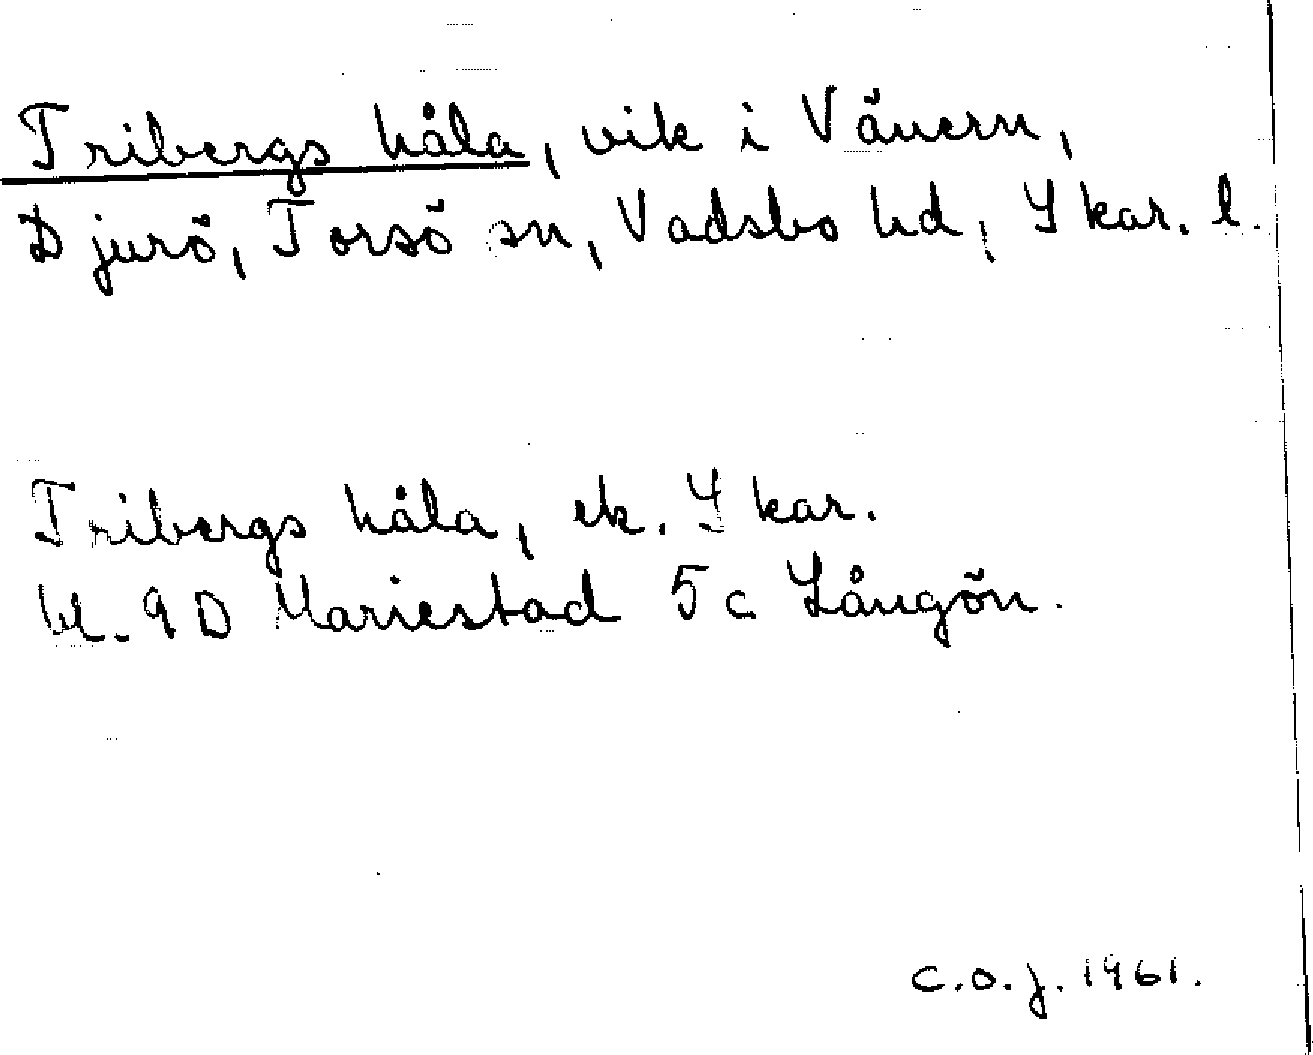 Tribergs håla, vik i Vänern,
Djurö, Torsö sn, Vadsbo hd, Skar. l.
Tribergs håla, ek. Skar.
bl. 9D Mariestad 5c Långön.
C.O.J. 1961.